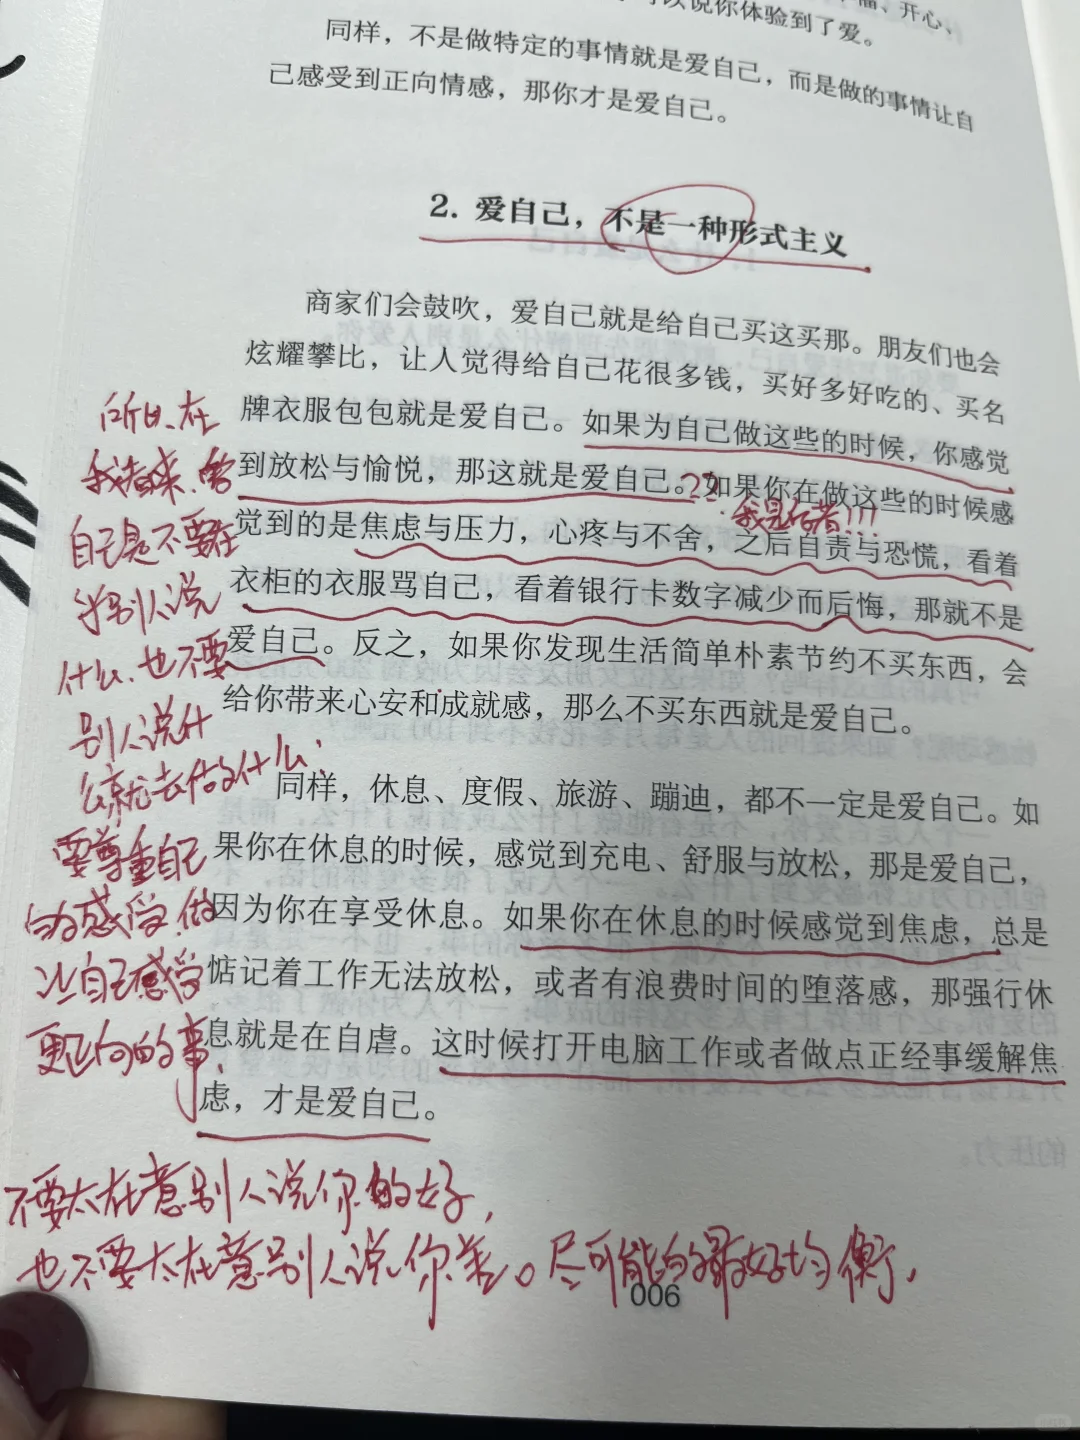 可以说你体验到了爱。
同样，不是做特定的事情就是爱自己，而是做的事情让自
己感受到正向情感，那你才是爱自己。
2. 爱自己，不是一种形式主义
商家们会鼓吹，爱自己就是给自己买这买那。朋友们也会
炫耀攀比，让人觉得给自己花很多钱，买好多好吃的、买名
牌衣服包包就是爱自己。如果为自己做这些的时候，你感觉
到放松与愉悦，那这就是爱自己。如果你在做这些的时候感
??
我是后者!!!
觉到的是焦虑与压力，心疼与不舍，之后自责与恐慌，看着
衣柜的衣服骂自己，看着银行卡数字减少而后悔，那就不是
爱自己。反之，如果你发现生活简单朴素节约不买东西，会
给你带来心安和成就感，那么不买东西就是爱自己。
同样，休息、度假、旅游、蹦迪，都不一定是爱自己。如
果你在休息的时候，感觉到充电、舒服与放松，那是爱自己，
因为你在享受休息。如果你在休息的时候感觉到焦虑，总是
惦记着工作无法放松，或者有浪费时间的堕落感，那强行休
息就是在自虐。这时候打开电脑工作或者做点正经事缓解焦
虑，才是爱自己。
所以、在
我看来、爱
自己是不要在
乎别人说
什么、也不要
别人说什
么就去做什么；
要尊重自己
的感受，做
让自己感受
更正向的事，
不要太在意别人说你的好，
也不要太在意别人说你差。尽可能的最好均衡，
006